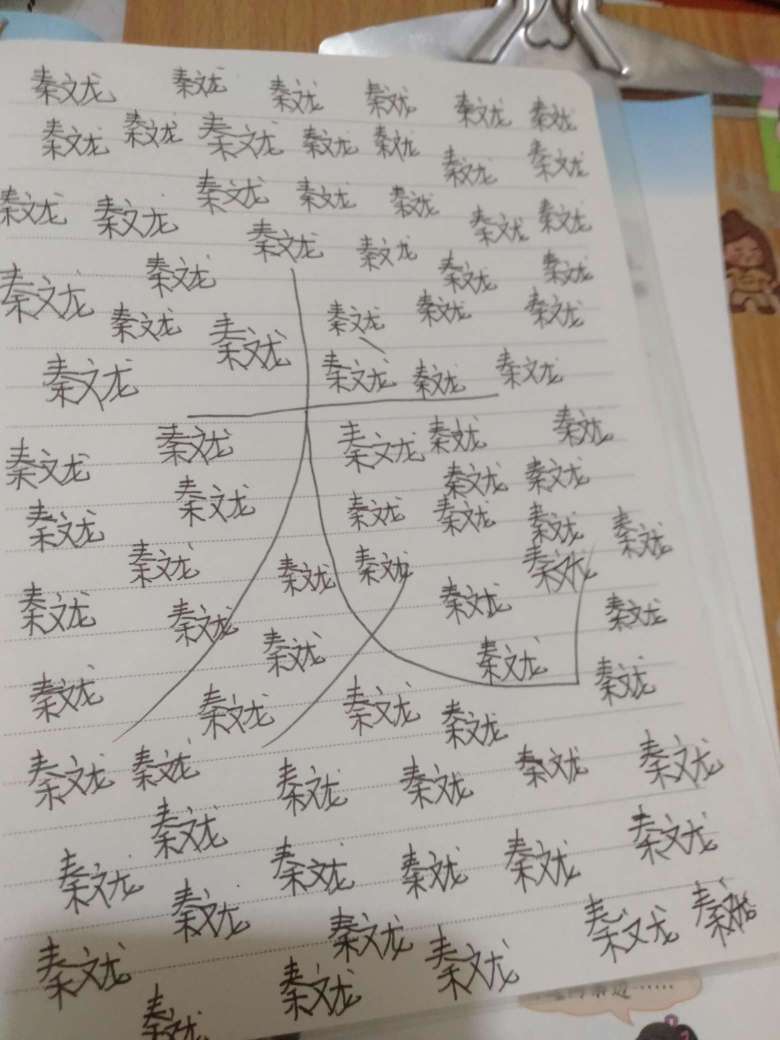 秦文龙 秦文龙 秦文龙 秦文龙 秦文龙 秦文龙
秦文龙 秦文龙 秦文龙 秦文龙 秦文龙 秦文龙 秦文龙
秦文龙 秦文龙 秦文龙 秦文龙 秦文龙 秦文龙 秦文龙
秦文龙 秦文龙 秦文龙 秦文龙 秦文龙
秦文龙 秦文龙 秦文龙 秦文龙 秦文龙 秦文龙
秦文龙 秦文龙 秦文龙 秦文龙
龙
秦文龙 秦文龙 秦文龙 秦文龙
秦文龙 秦文龙 秦文龙 秦文龙
秦文龙 秦文龙 秦文龙 秦文龙 秦文龙
秦文龙 秦文龙 秦文龙 秦文龙
秦文龙 秦文龙 秦文龙 秦文龙
秦文龙 秦文龙 秦文龙
秦文龙 秦文龙 秦文龙 秦文龙
秦文龙 秦文龙 秦文龙 秦文龙 秦文龙 秦文龙
秦文龙 秦文龙
秦文龙 秦文龙 秦文龙 秦文龙
秦文龙 秦文龙 秦文龙 秦文龙
秦文龙 秦文龙
秦文龙 秦文龙